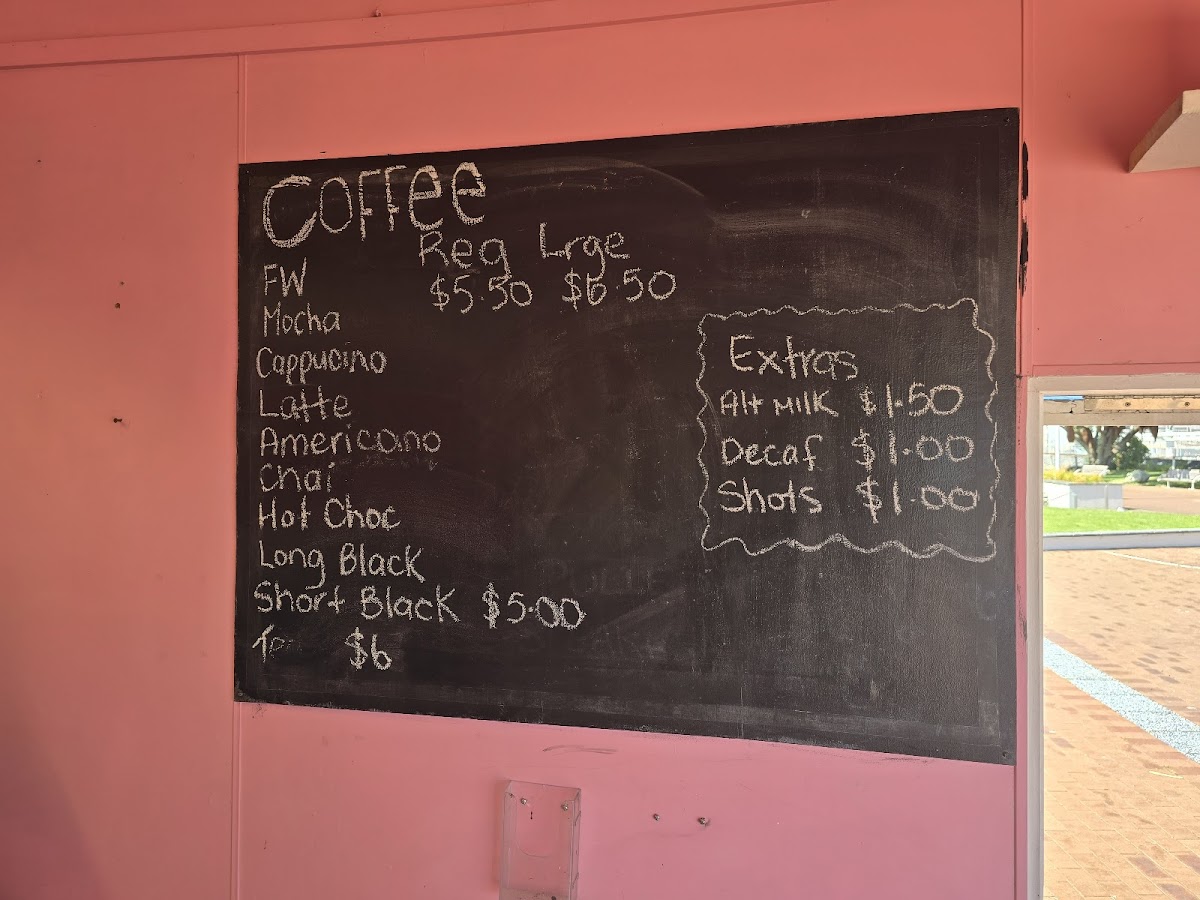 Coffee
Reg Lrge
FW $5.50 $6.50
Mocha
Cappucino
Latte
Americano
Chai
Hot Choc
Long Black
Short Black $5.00
$6
Extras
Alt Milk $1.50
Decaf $1.00
Shots $1.00